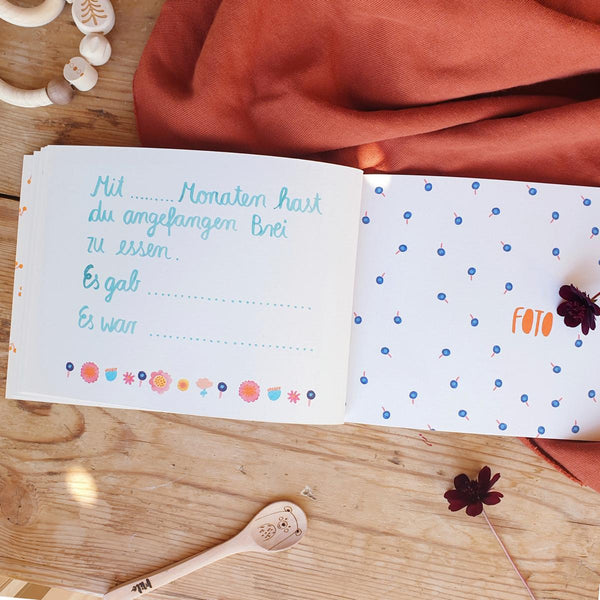 Mit ........ Monaten hast
du angefangen Brei
zu essen.
Es gab ..............................
Es war ..............................
FOTO